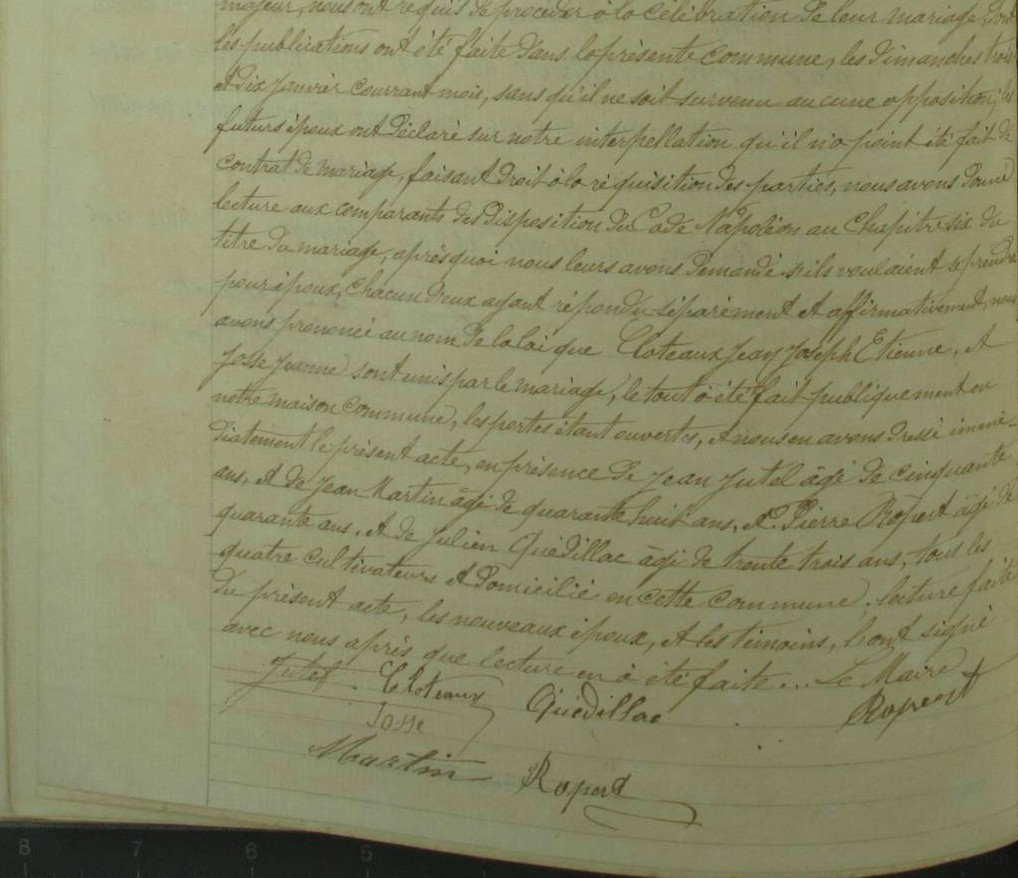 majeur, nous ont requis de procéder à la célébration de leur mariage, dont
les publications ont été faite dans la présente commune, les dimanches trois
et dix janvier courrant mois, sans qu'il ne soit survenu aucune opposition; les
futurs époux ont déclaré sur notre interpellation qu'il n'a point été fait de
contrat de mariage, faisant droit à la réquisition des parties, nous avons donné
lecture aux comparants des disposition du Code Napoléon au Chapitre six du
titre du mariage, après quoi nous leurs avons demandé s'ils voulaient se prendre
pour époux, chacun d'eux ayant répondu séparément et affirmativement, nous
avons prononcé au nom de la loi que Cloteaux Jean Joseph Etienne, et
Josse Jeanne sont unis par le mariage, le tout à été fait publiquement en
notre maison commune, les portes étant ouvertes, et nous en avons dressé immé-
diatement le présent acte, en présence de Jean Jutel âgé de cinquante
ans, et de Jean Martin âgé de quarante huit ans, et Pierre Ropert âgé de
quarante ans, et de Julien Quédillac âgé de trente trois ans, tous les
quatre cultivateurs et domicilié en cette commune, lecture faite
du présent acte, les nouveaux époux, et les témoins, l'ont signé
avec nous après que lecture en à été faite... Le Maire
Jutel Cloteaux Quédillac Ropert
Josse
Martin Ropert
8 7 6 5